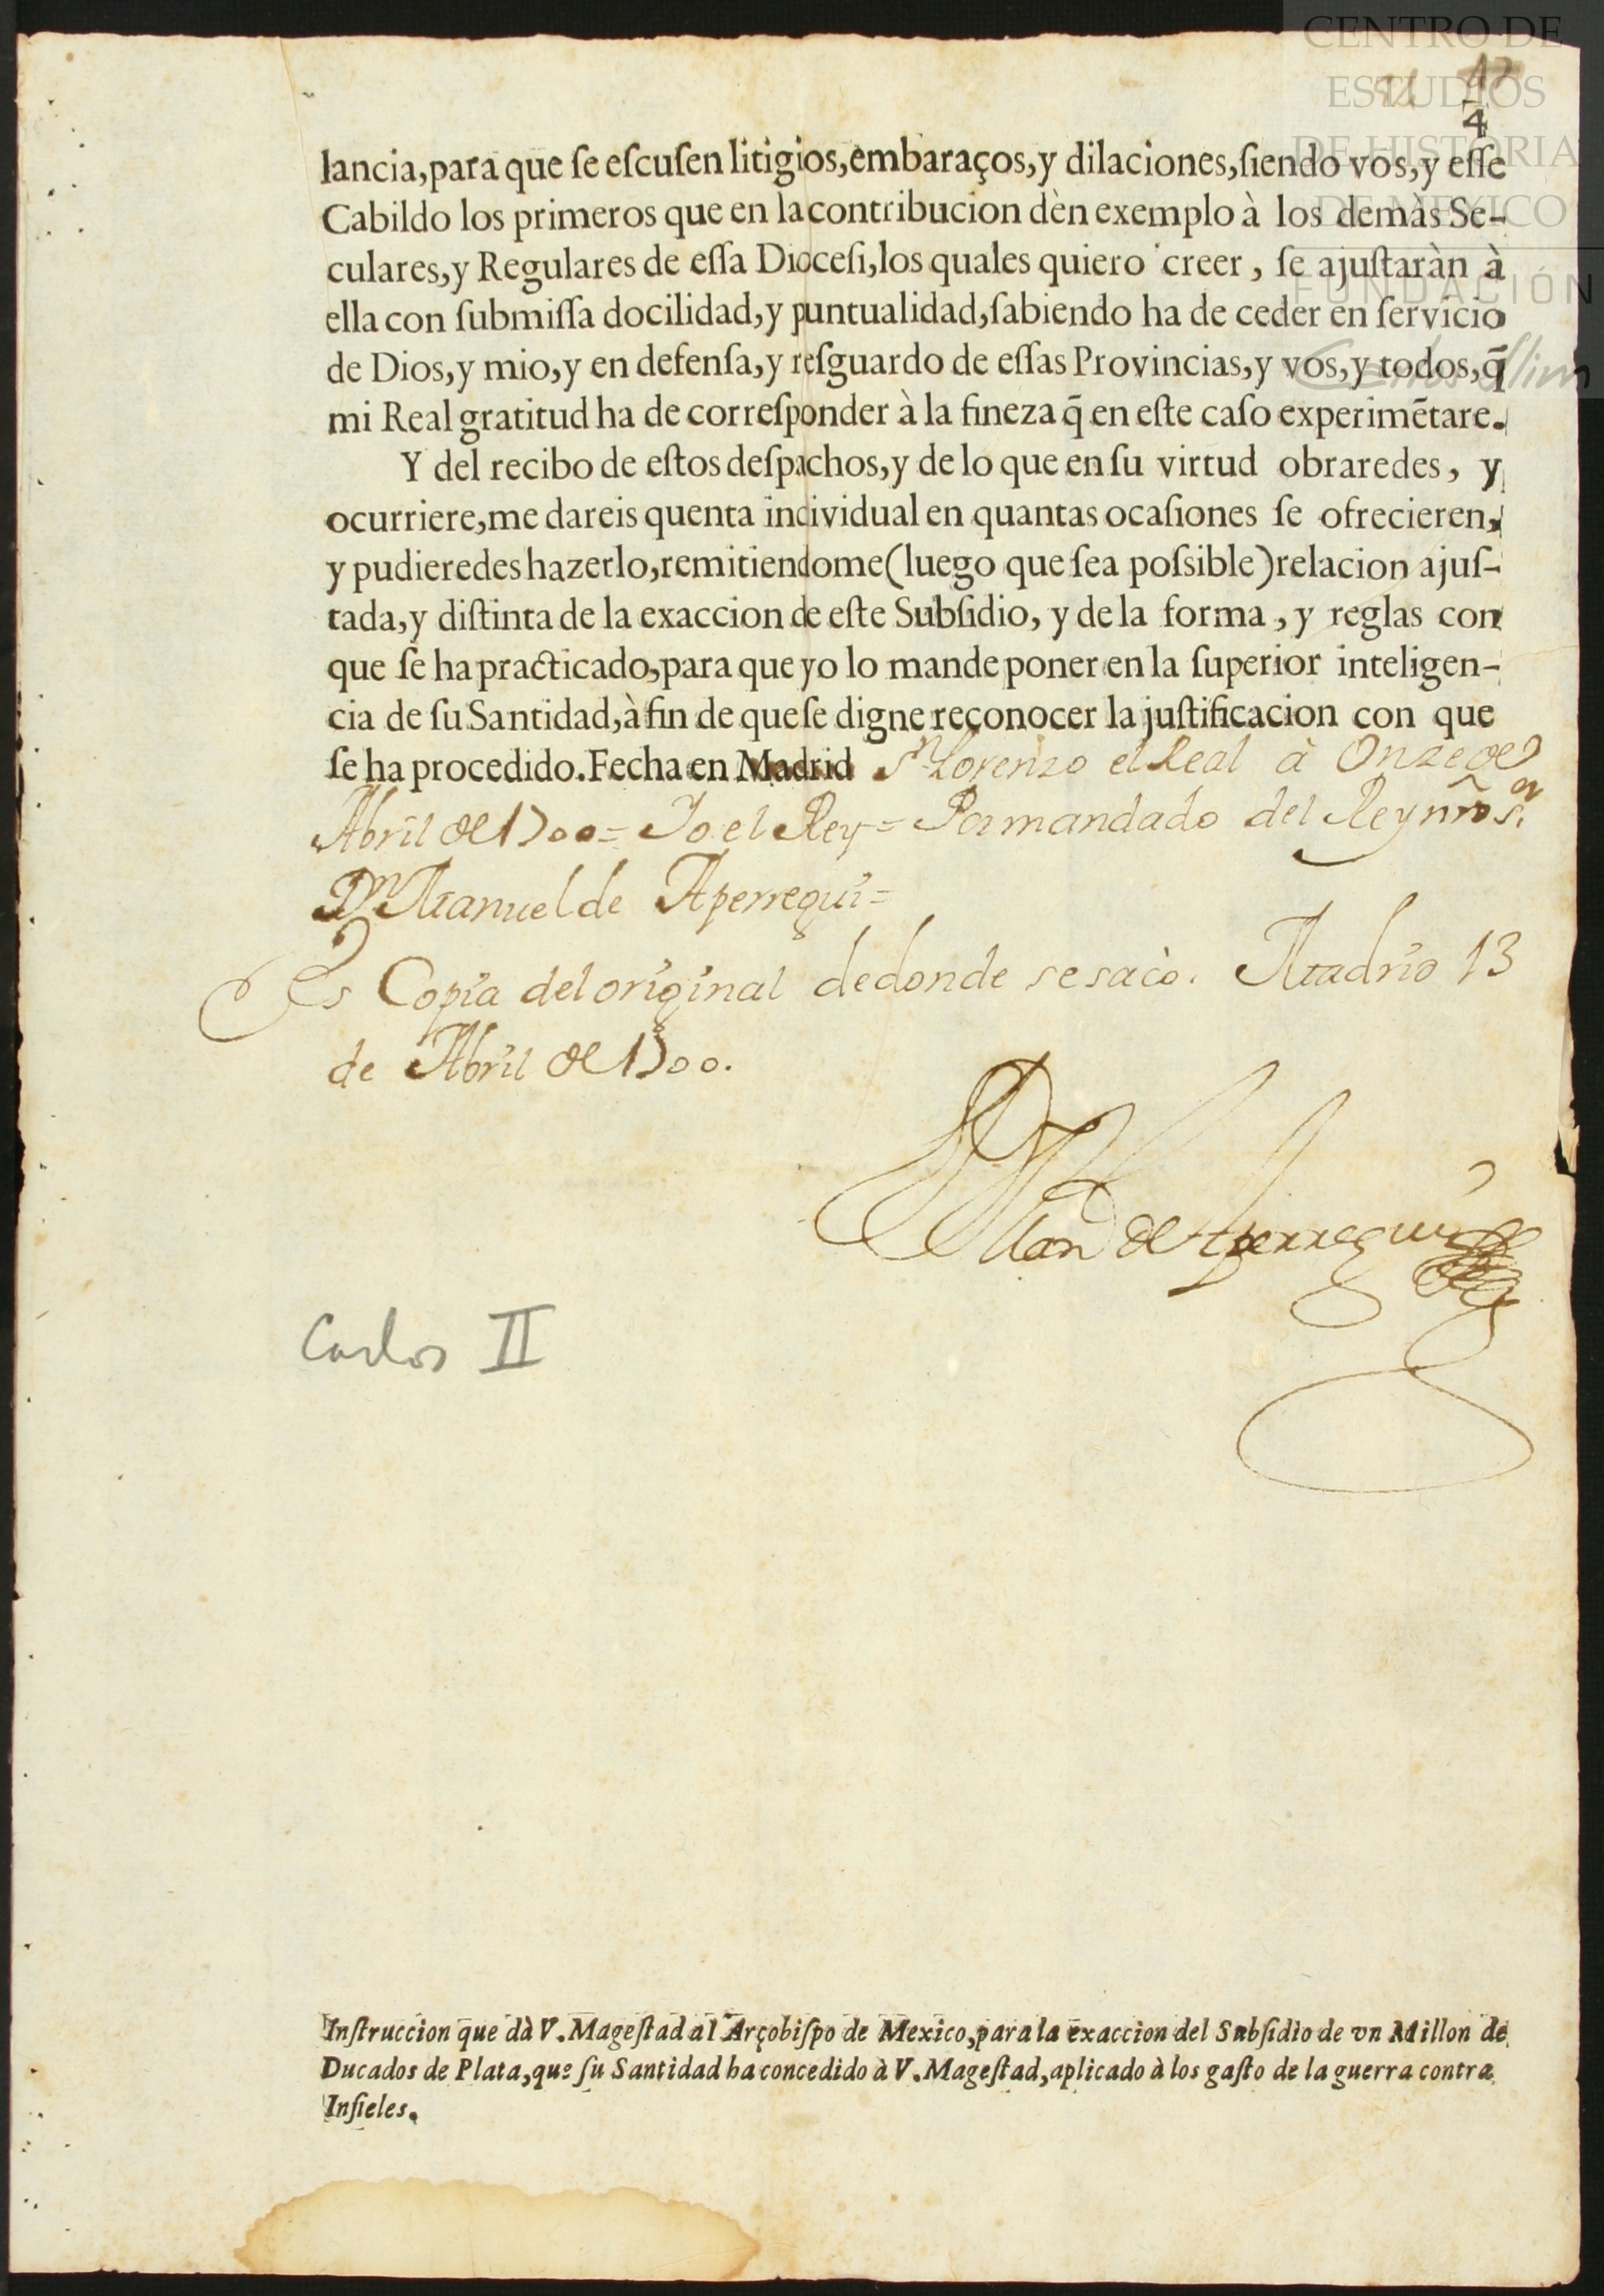 CENTRO DE
ESTUDIOS
DE HISTORIA
DE MEXICO
FUNDACIÓN
Carlos Slim
4
lancia,para que ſe eſcuſen litigios,embaraços,y dilaciones,ſiendo vos,y eſſe
Cabildo los primeros que en la contribucion dèn exemplo à los demàs Se-
culares,y Regulares de eſſa Dioceſi,los quales quiero creer, ſe ajuſtaràn à
ella con ſubmiſſa docilidad,y puntualidad,ſabiendo ha de ceder en ſervicio
de Dios,y mio,y en defenſa,y reſguardo de eſſas Provincias,y vos,y todos,q̃
mi Real gratitud ha de correſponder à la fineza q̃ en eſte caſo experimẽtare.
Y del recibo de eſtos deſpachos,y de lo que en ſu virtud obraredes, y
ocurriere,me dareis quenta individual en quantas ocaſiones ſe ofrecieren,
y pudieredes hazerlo,remitiendome (luego que ſea poſsible) relacion ajuſ-
tada,y diſtinta de la exaccion de eſte Subſidio, y de la forma, y reglas con
que ſe ha practicado,para que yo lo mande poner en la ſuperior inteligen-
cia de ſu Santidad,à fin de que ſe digne reconocer la juſtificacion con que
ſe ha procedido. Fecha en Madrid Sn. Lorenzo el Real à Onze de
Abril de 1700= Yo el Rey= Por mandado del Rey nr̃o Sr.
Dn Manuel de Aperregui=
Es Copia del original de donde se sacò. Madrid 13
de Abril de 1700.
Man de Aperregui
Carlos II
Inſtruccion que dà V. Mageſtad al Arçobiſpo de Mexico,para la exaccion del Subſidio de vn Millon de
Ducados de Plata,que ſu Santidad ha concedido à V. Mageſtad,aplicado à los gaſto de la guerra contra
Infieles.